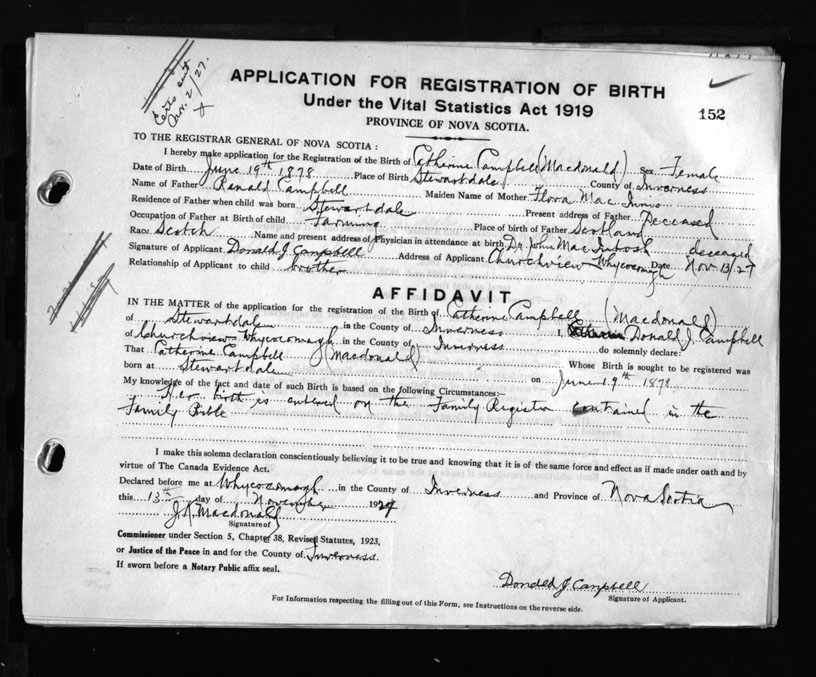 Certs sent
Nov. 2/27.
X
APPLICATION FOR REGISTRATION OF BIRTH
Under the Vital Statistics Act 1919
PROVINCE OF NOVA SCOTIA.
152
TO THE REGISTRAR GENERAL OF NOVA SCOTIA :
I hereby make application for the Registration of the Birth of Catherine Campbell (Macdonald) Sex Female
Date of Birth June 19th 1878 Place of Birth Stewartdale County of Inverness
Name of Father Ranald Campbell Maiden Name of Mother Flora Mac Innis
Residence of Father when child was born Stewartdale Present address of Father Deceased
Occupation of Father at Birth of child Farming Place of birth of Father Scotland
Race Scotch Name and present address of Physician in attendance at birth Dr John MacIntosh deceased
Signature of Applicant Donald J. Campbell Address of Applicant Churchview Whycocomagh Date Nov. 13/27
Relationship of Applicant to child brother
AFFIDAVIT
IN THE MATTER of the application for the registration of the Birth of Catherine Campbell (Macdonald)
of Stewartdale in the County of Inverness I, Donald J. Campbell
of Churchview Whycocomagh in the County of Inverness do solemnly declare:
That Catherine Campbell (Macdonald) Whose Birth is sought to be registered was
born at Stewartdale on June 19th 1878
My knowledge of the fact and date of such Birth is based on the following Circumstances:—
Her birth is entered on the Family Register contained in the
Family Bible
I make this solemn declaration conscientiously believing it to be true and knowing that it is of the same force and effect as if made under oath and by
virtue of The Canada Evidence Act.
Declared before me at Whycocomagh in the County of Inverness and Province of Nova Scotia
this 13th day of November 1927
J. A. Macdonald
Signature of
Commissioner under Section 5, Chapter 38, Revised Statutes, 1923,
or Justice of the Peace in and for the County of Inverness.
If sworn before a Notary Public affix seal.
Donald J Campbell
Signature of Applicant.
For Information respecting the filling out of this Form, see Instructions on the reverse side.